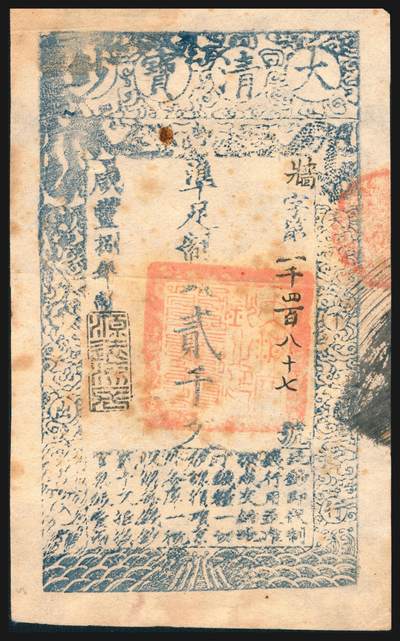 大清寶鈔
牆字第一千四百八十七號
準足制錢貳千文
咸豐捌年製
此鈔即代制
錢行用並准
按成交納地
丁錢糧一切
稅課捐項京
外各庫一概
收解每錢鈔
貳千文抵換
官票銀壹兩